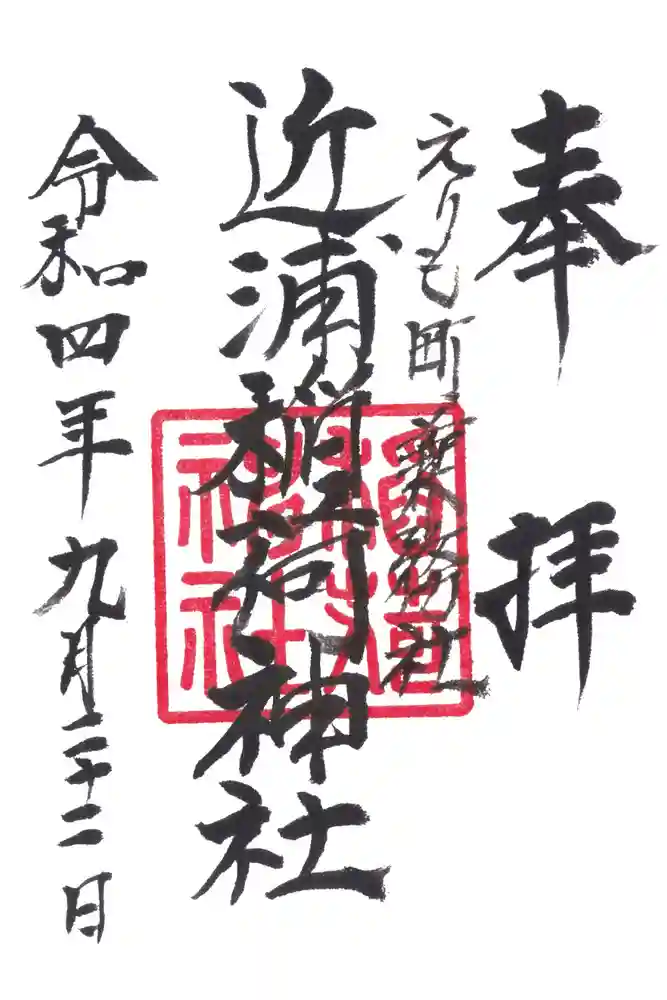 奉拝
えりも町 兼務社
近浦稲荷神社
令和四年九月二十二日